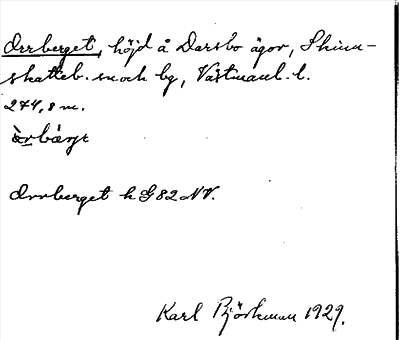 Orrberget, höjd å Darsbo ägor, Skinn-
skatteb. sn och bg, Västmanl. l.
274,8 m.
òrbärjt
Orrberget h G82NV.
Karl Björkman 1929.